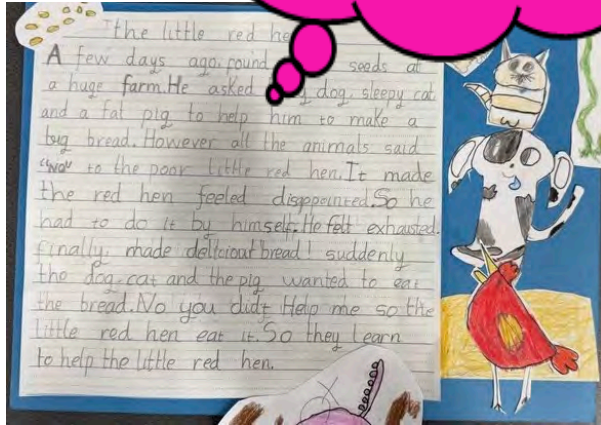 the little red he
A few days ago, pound seeds at
a huge farm. He asked dog, sleepy cat
and a fat pig to help him to make a
big bread. However all the animals said
"No" to the poor little red hen. It made
the red hen feeled disappointed. So he
had to do it by himself. He felt exhausted.
finally, made deliciourt bread! suddenly
the dog, cat and the pig wanted to eat
the bread. No you didt Help me so the
little red hen eat it. So they learn
to help the little red hen.